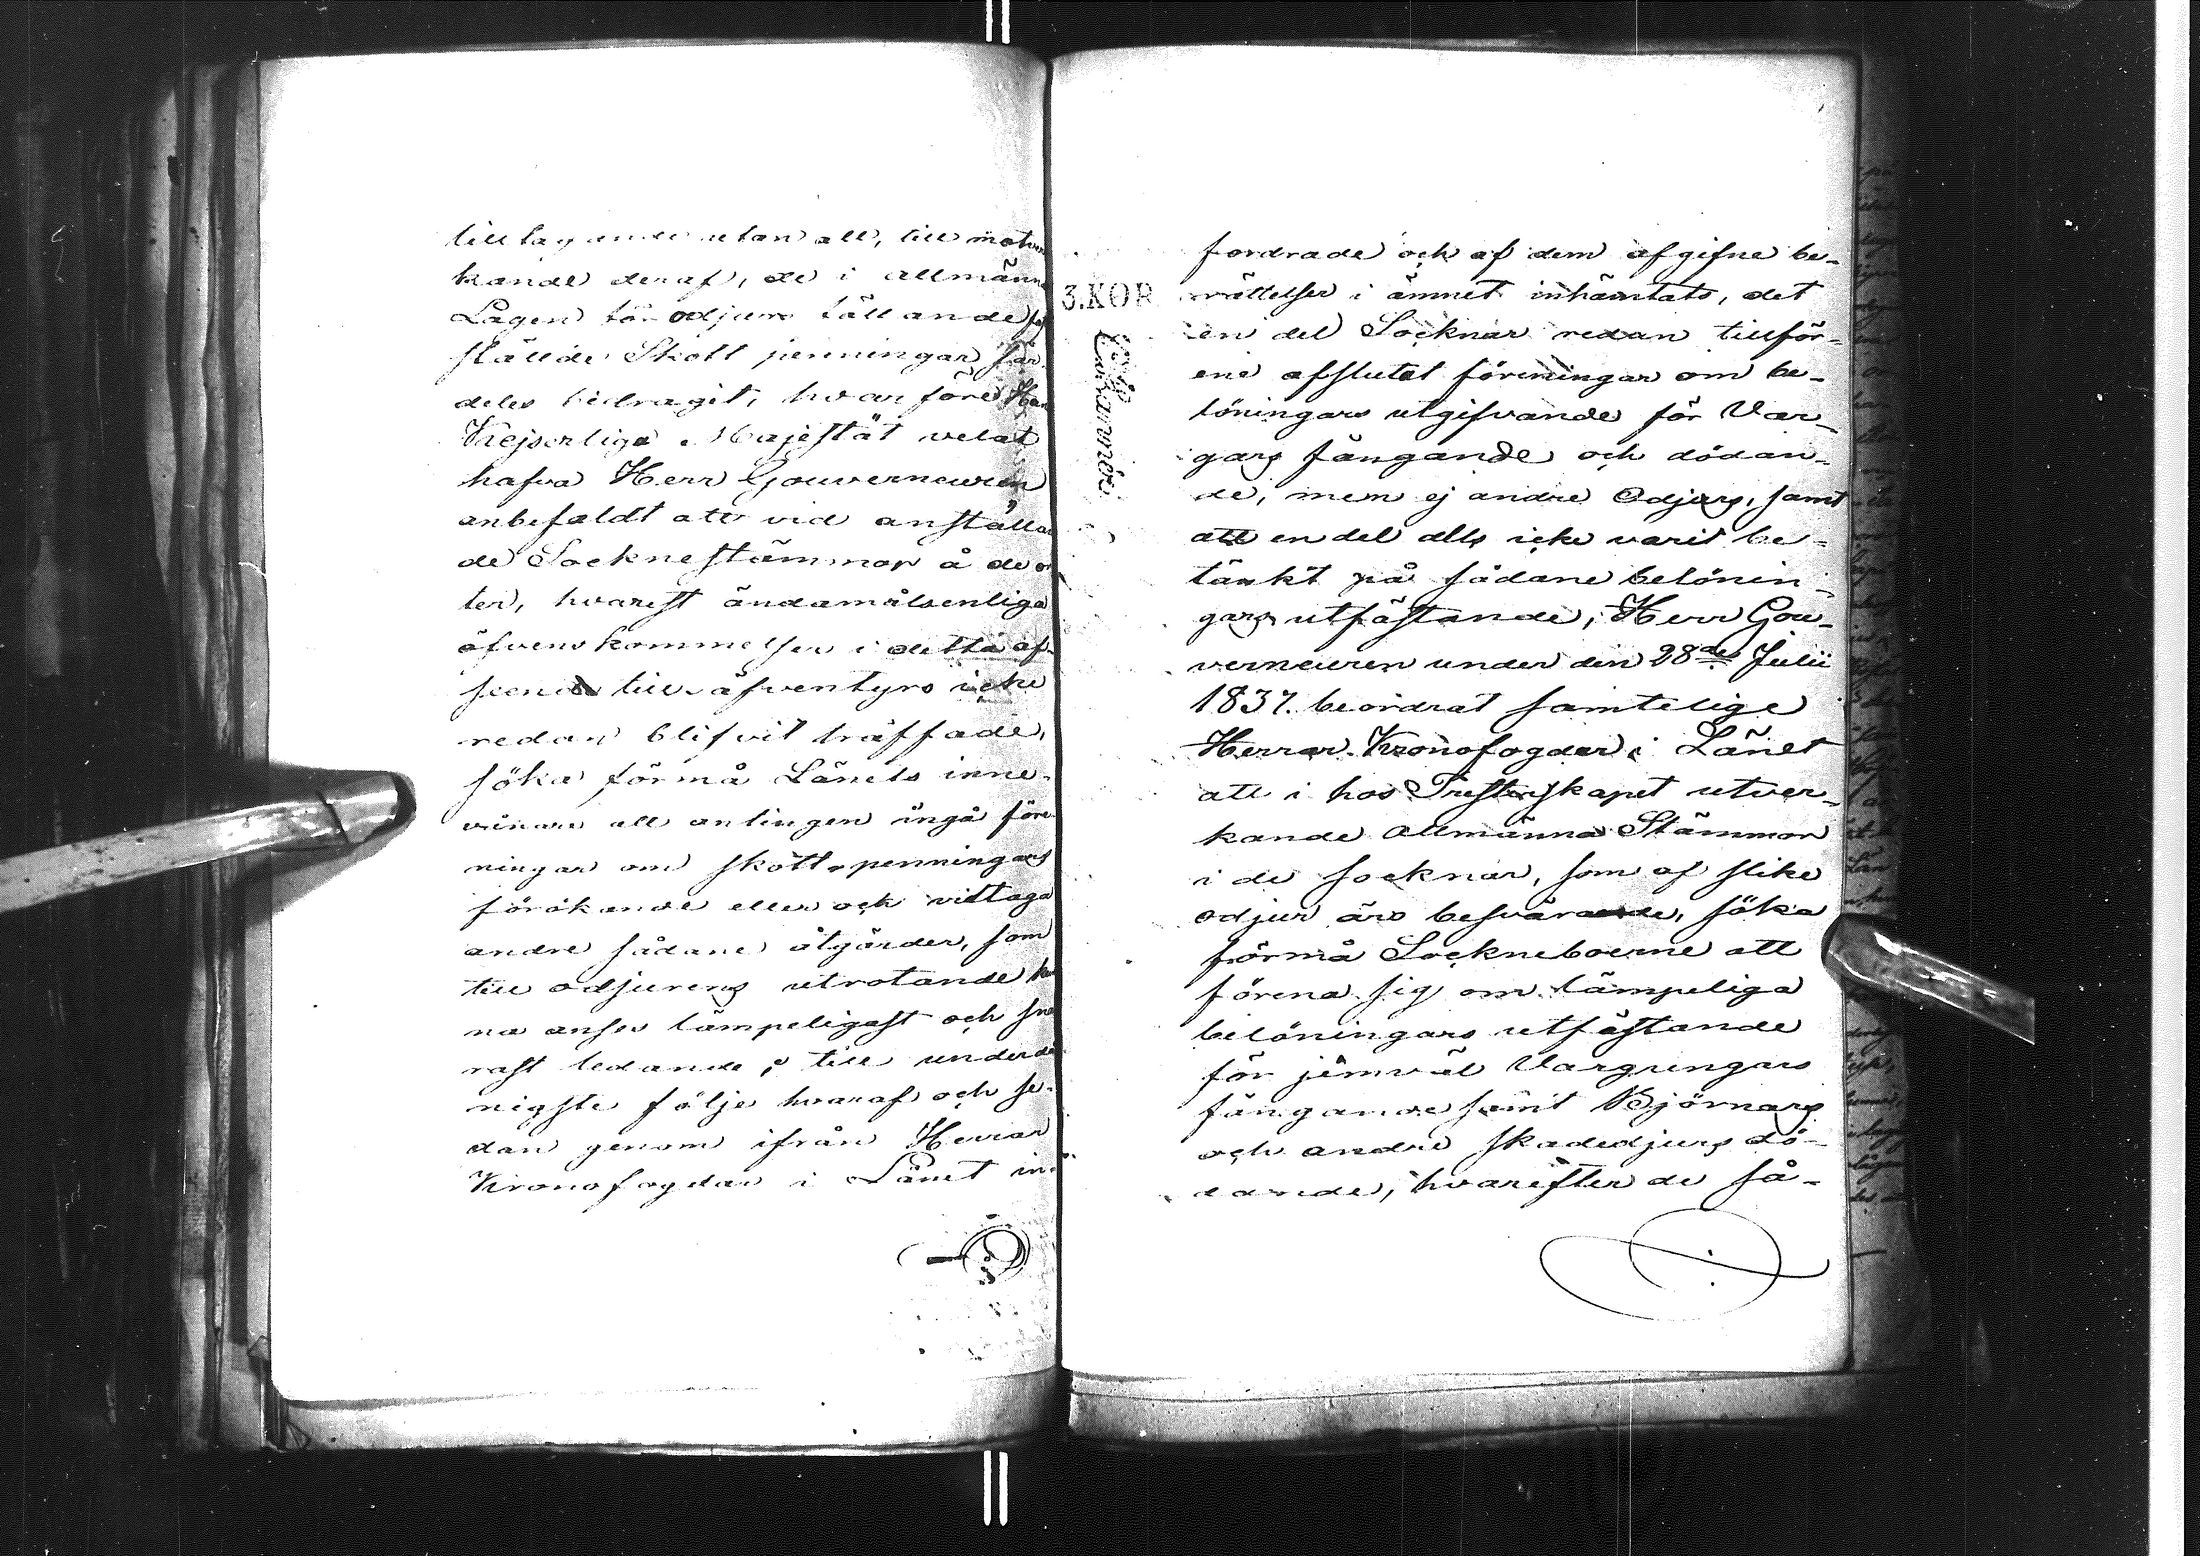 tilltagande utan att, till motver
kande deraf, de i allmänna
Lagen för odjurs fällande
ställde Skottpenningar sär
deles bidragit, hvarföre Hans
Kejserliga Majestät velat
hafva Herr Gouverneuren
anbefaldt att vid anställan
de Socknestämmor å de or
ter, hvarest ändamålsenliga
öfvenskommelser i detta af-
seende till äfventyrs icke
redan blifvit träffade,
söka förmå Länets inne-
vånare att antingen ingå före
ningar om skottpenningars
förökande eller och vidtaga
andre sådane åtgärder, som
till odjurens utrotande kun
na anses lämpeligast och sna
rast ledande; till underdå
nigste följe hvaraf och se-
dan genom ifrån Herrar
Kronofogdar i Länet in-
fordrade och af dem afgifne be-
rättelser i ämnet inhämtats, det
en del Socknar redan tillför-
ene afslutat föreningar om be-
löningars utgifvande för Var-
gars fångande och dödan-
de, men ej andre Odjurs, samt
att en del alls icke varit be-
tänkt på sådane belönin-
gars utfästande, Herr Gou-
verneuren under den 28de Julii
1837. beordrat samtelige
Herrar Kronofogdar i Länet
att i hos Presterskapet utver-
kande allmänna Stämmor
i de socknar, som af slike
odjur äro besvärande, söka
förmå Sockneboerne att
förena sig om lämpeliga
belöningars utfästande
för jemväl Vargungars
fångande samt Björnars
och andre skadedjurs dö-
dande, hvarefter de så-
3.KOR